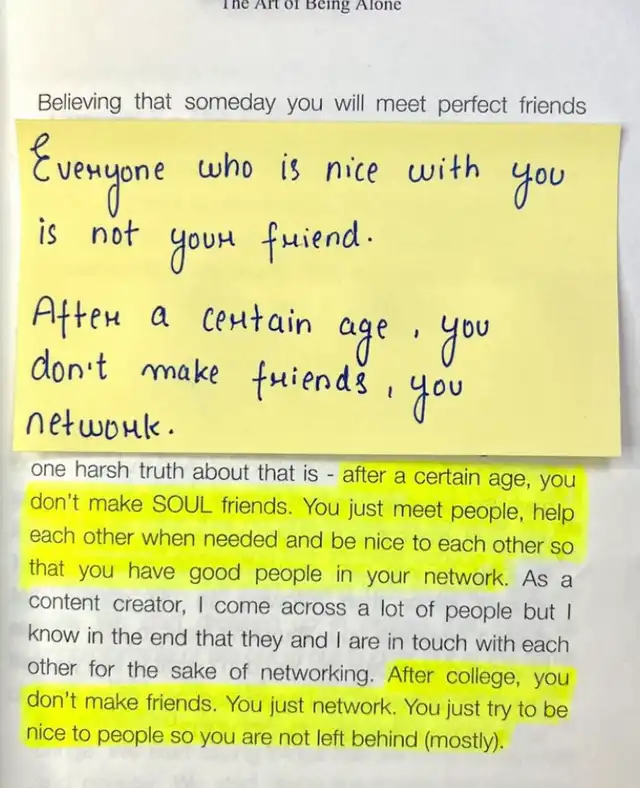 The Art of Being Alone
Believing that someday you will meet perfect friends
Everyone who is nice with you
is not your friend.
After a certain age, you
don't make friends, you
network.
one harsh truth about that is - after a certain age, you
don't make SOUL friends. You just meet people, help
each other when needed and be nice to each other so
that you have good people in your network. As a
content creator, I come across a lot of people but I
know in the end that they and I are in touch with each
other for the sake of networking. After college, you
don't make friends. You just network. You just try to be
nice to people so you are not left behind (mostly).